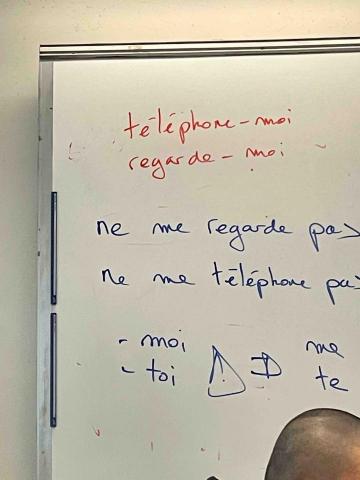 téléphone-moi
regarde-moi
ne me regarde pas
ne me téléphone pas
- moi me
- toi te